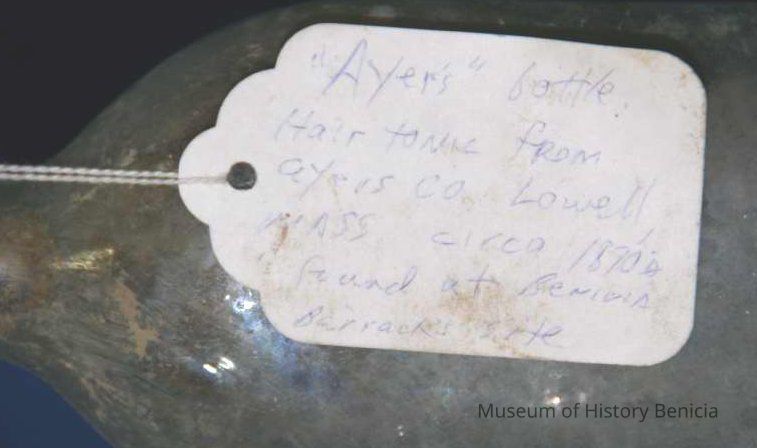 "Ayer's" bottle.
Hair tonic from
ayers co. Lowell
mass circa 1870's
found at Benicia
Barracks site
Museum of History Benicia